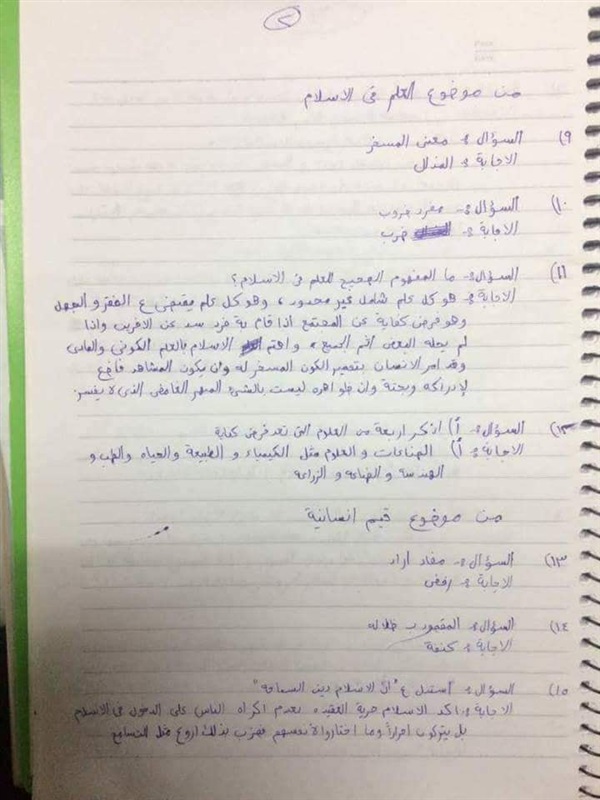 ٢
من موضوع العلم في الاسلام
٩) السؤال:- معنى المسخر
الاجابة:- المذلل
١٠) السؤال:- مفرد ضروب
الاجابة:- ضرب
١١) السؤال:- ما المفهوم الصحيح للعلم في الاسلام؟
الاجابة:- هو كل علم شامل غير محدود، وهو كل علم يقضى ع الفقر و الجهل
وهو فرض كفاية عن المجتمع اذا قام به فرد سد عن الآخرين واذا
لم يجله البعض اثم الجميع، واهتم الاسلام بالعلم الكوني والمادى
وقد امر الانسان بتعمير الكون المسخر له وان يكون المشاهد خاضع
لإدراكه وبحثة وان ظواهره ليست بالشئ المبهم الغامض الذى لا يفسر.
١٢) السؤال:- أ) اذكر اربعة من العلوم التى تعد فرض كفاية
الاجابة:- أ) الصناعات و العلوم مثل الكيمياء و الطبيعة والحياه والطب و
الهندسة و الصناعه و الزراعه
من موضوع قيم انسانية
١٣) السؤال:- مضاد اراد
الاجابة:- رفض
١٤) السؤال:- المقصود ب ظلاله
الاجابة:- كنفة
١٥) السؤال:- استدل ع "ان الاسلام دين السماحه"
الاجابة:- اكد الاسلام حرية العقيده بعدم اكراه الناس على الدخول في الاسلام
بل يتركون احراراً وما اختاروا لأنفسهم فضرب بذلك اروع مثل للتسامح